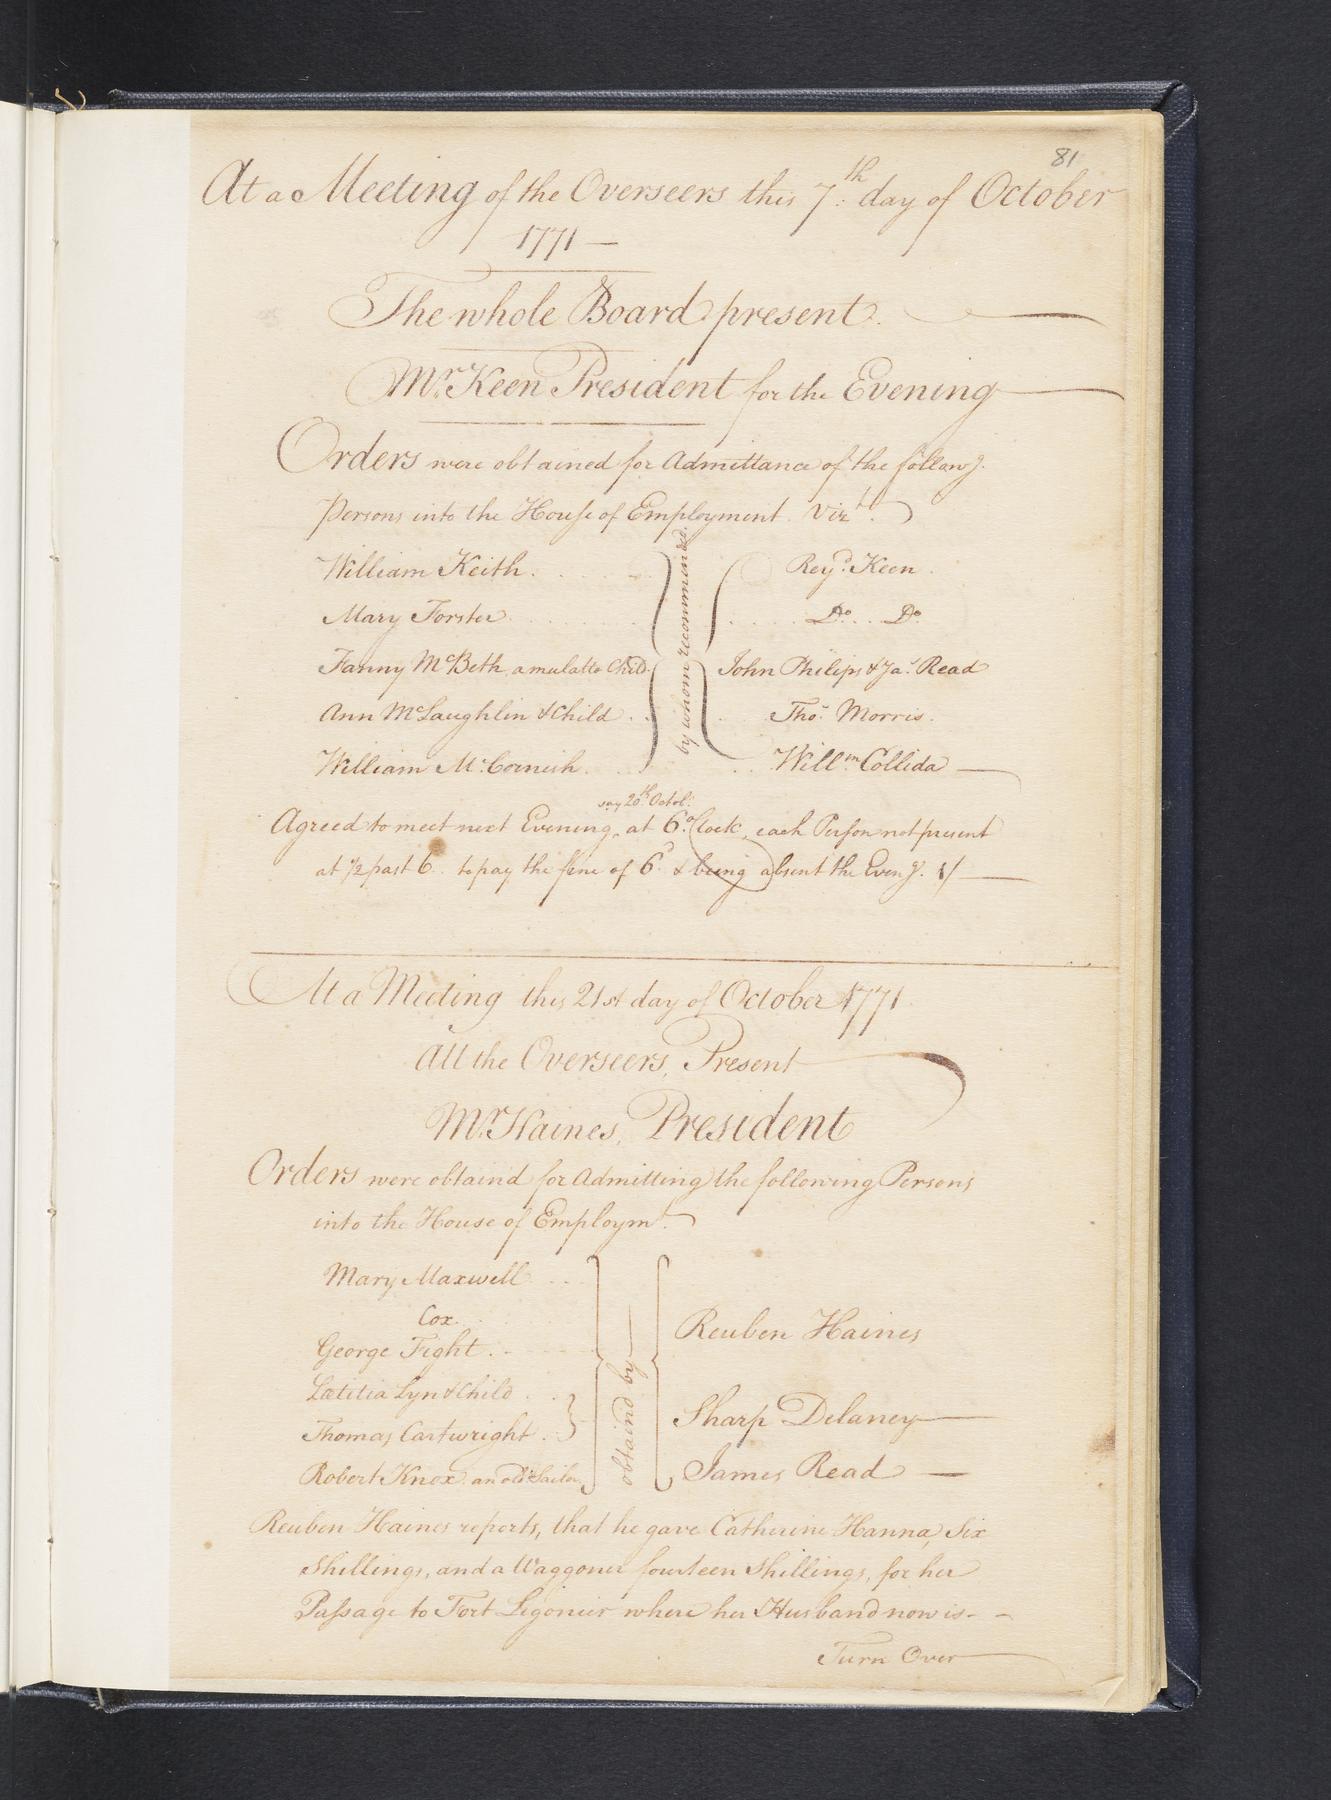 81
At a Meeting of the Overseers this 7th day of October
1771 —
The whole Board present.
Mr. Keen President for the Evening
Orders were obtained for Admittance of the followg.
Persons into the House of Employment. Vizt.
by whom recommended.
William Keith . . . . Reyd. Keen
Mary Forster . . . . Do. . . Do.
Fanny McBeth, a mulatto Child John Philips & Jas. Read
Ann McLaughlin & Child . . . Thos. Morris.
William McCornish . . . Willm. Collida —
say 20th Octobr.
Agreed to meet next Evening, at 6 o'Clock, each Person not present
at 1/2 past 6 . to pay the fine of 6d & being absent the Eveng. 1/ —
At a Meeting this 21st day of October 1771
All the Overseers, Present
Mr. Haines, President
Orders were obtaind for Admitting the following Persons
into the House of Employmt.
obtaind by —
Mary Maxwell . . .
Cox . . Reuben Haines
George Fight . -
Lætitia Lyn & Child . .
Thomas Cartwright . Sharp Delaney —
Robert Knox an old Sailor James Read —
Reuben Haines reports, that he gave Catherine Hanna, Six
Shillings, and a Waggoner fourteen Shillings, for her
Passage to Fort Ligonier where her Husband now is - -
Turn Over